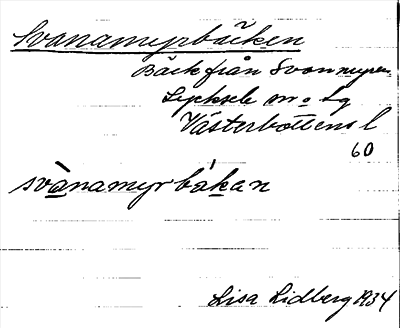 Svanamyrbäcken
Bäck från Svanmyren
Lycksele sn o lg
Västerbottens l
60
svànamyrbákan
Lisa Lidberg 1934